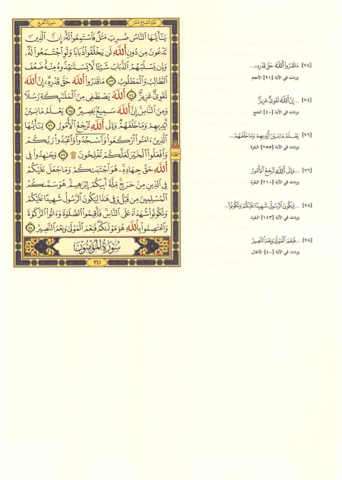 الجزء السابع عشر سورة الحج
يَٰٓأَيُّهَا ٱلنَّاسُ ضُرِبَ مَثَلٌ فَٱسْتَمِعُوا۟ لَهُۥٓ إِنَّ ٱلَّذِينَ
تَدْعُونَ مِن دُونِ ٱللَّهِ لَن يَخْلُقُوا۟ ذُبَابًا وَلَوِ ٱجْتَمَعُوا۟ لَهُۥ
وَإِن يَسْلُبْهُمُ ٱلذُّبَابُ شَيْـًٔا لَّا يَسْتَنقِذُوهُ مِنْهُ ضَعُفَ
ٱلطَّالِبُ وَٱلْمَطْلُوبُ ٧٣ مَا قَدَرُوا۟ ٱللَّهَ حَقَّ قَدْرِهِۦٓ إِنَّ ٱللَّهَ
لَقَوِىٌّ عَزِيزٌ ٧٤ ٱللَّهُ يَصْطَفِى مِنَ ٱلْمَلَٰٓئِكَةِ رُسُلًا
وَمِنَ ٱلنَّاسِ إِنَّ ٱللَّهَ سَمِيعٌۢ بَصِيرٌ ٧٥ يَعْلَمُ مَا بَيْنَ
أَيْدِيهِمْ وَمَا خَلْفَهُمْ وَإِلَى ٱللَّهِ تُرْجَعُ ٱلْأُمُورُ ٧٦ يَٰٓأَيُّهَا
ٱلَّذِينَ ءَامَنُوا۟ ٱرْكَعُوا۟ وَٱسْجُدُوا۟ وَٱعْبُدُوا۟ رَبَّكُمْ
وَٱفْعَلُوا۟ ٱلْخَيْرَ لَعَلَّكُمْ تُفْلِحُونَ ۩ ٧٧ وَجَٰهِدُوا۟ فِى
ٱللَّهِ حَقَّ جِهَادِهِۦ هُوَ ٱجْتَبَىٰكُمْ وَمَا جَعَلَ عَلَيْكُمْ
فِى ٱلدِّينِ مِنْ حَرَجٍ مِّلَّةَ أَبِيكُمْ إِبْرَٰهِيمَ هُوَ سَمَّىٰكُمُ
ٱلْمُسْلِمِينَ مِن قَبْلُ وَفِى هَٰذَا لِيَكُونَ ٱلرَّسُولُ شَهِيدًا عَلَيْكُمْ
وَتَكُونُوا۟ شُهَدَآءَ عَلَى ٱلنَّاسِ فَأَقِيمُوا۟ ٱلصَّلَوٰةَ وَءَاتُوا۟ ٱلزَّكَوٰةَ
وَٱعْتَصِمُوا۟ بِٱللَّهِ هُوَ مَوْلَىٰكُمْ فَنِعْمَ ٱلْمَوْلَىٰ وَنِعْمَ ٱلنَّصِيرُ ٧٨
سُورَةُ الْمُؤْمِنُونَ
٣٤١
[٧٤] مَا قَدَرُوا۟ ٱللَّهَ حَقَّ قَدْرِهِۦٓ...
وردت في الآية [٩١] الأنعام
[٧٤] ...إِنَّ ٱللَّهَ لَقَوِىٌّ عَزِيزٌ
وردت في الآية [٤٠] الحج
[٧٦] يَعْلَمُ مَا بَيْنَ أَيْدِيهِمْ وَمَا خَلْفَهُمْ...
وردت في الآية [٢٥٥] البقرة
[٧٦] ...وَإِلَى ٱللَّهِ تُرْجَعُ ٱلْأُمُورُ
وردت في الآية [٢١٠] البقرة
[٧٨] ...لِيَكُونَ ٱلرَّسُولُ شَهِيدًا عَلَيْكُمْ وَتَكُونُوا۟...
وردت في الآية [١٤٣] البقرة
[٧٨] ...فَنِعْمَ ٱلْمَوْلَىٰ وَنِعْمَ ٱلنَّصِيرُ
وردت في الآية [٤٠] الأنفال